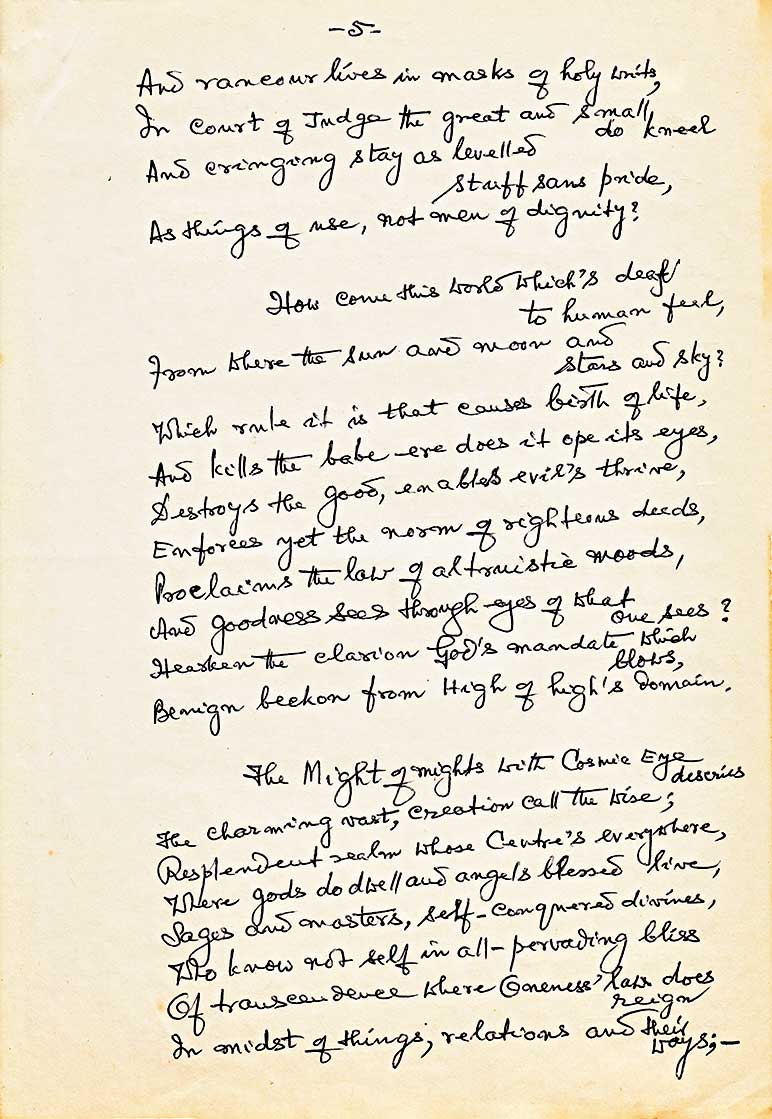 -5-
And rancour lives in masks of holy writs,
In court of Judge the great and small
do kneel
And cringing stay as levelled
stuff sans pride,
As things of use, not men of dignity?
How come this world which's deaf
to human feel,
From where the sun and moon and
stars and sky?
Which rule it is that causes birth of life,
And kills the babe ere does it ope its eyes,
Destroys the good, enables evil's thrive,
Enforces yet the norm of righteous deeds,
Proclaims the law of altruistic moods,
And goodness sees through eyes of what
one sees?
Hearken the clarion God's mandate which
blows,
Benign beckon from High of high's domain.
The Might of mights with Cosmic Eye
descries
The charming vast, Creation call the wise;
Resplendent realm whose Centre's everywhere,
Where gods do dwell and angels blessed live,
Sages and masters, self-conquered divines,
Who know not self in all-pervading bliss
Of transcendence where Oneness' law does
reign
In midst of things, relations and their
ways;—